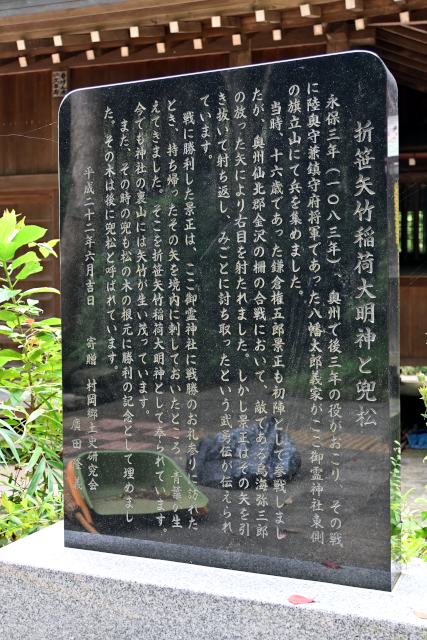 折笹矢竹稲荷大明神と兜松
永保三年（一〇八三年）、奥州で後三年の役がおこり、その戦
に陸奥守兼鎮守府将軍であった八幡太郎義家がここ御霊神社東側
の旗立山にて兵を集めました。
当時、十六歳であった鎌倉権五郎景正も初陣として参戦しまし
たが、奥州仙北郡金沢の柵の合戦において、敵である鳥海弥三郎
の放った矢により右目を射たれました。しかし景正はその矢を引
き抜いて射ち返し、みごとに討ち取ったという武勇伝が伝えられ
ています。
戦に勝利した景正は、ここ御霊神社に戦勝のお礼参りに訪れた
とき、持ち帰ったその矢を境内に刺しておいたところ、青葉が生
えてきました。そこを折笹矢竹稲荷大明神として奉られています。
今でも神社の裏山には矢竹が生い茂っています。
また、その時の兜も松の木の根元に勝利の記念として埋めまし
た。その木は後に兜松と呼ばれています。
平成二十二年六月吉日　寄贈　村岡郷土史研究会
廣田